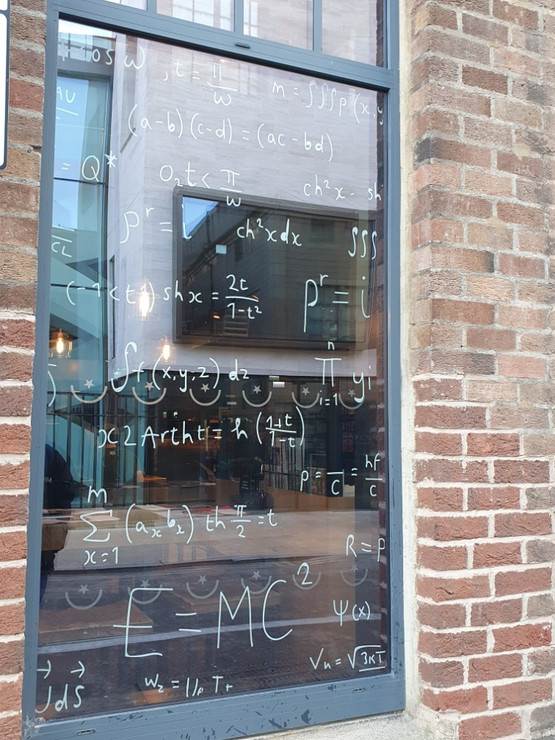 cosω , t = π/ω m = ∫∫∫p(x,y
AU
(a-b)(c-d) = (ac-bd)
= Q*
O₂t < π/ω ch²x - sh
pʳ = i ch²xdx ∫∫∫
CL
(-1<t1) shx = 2t/1-t² pʳ = i
∫f(x,y,z) dz n∏i=1 yi
x2Artht = h (1+t/1-t)
p = /c = hf/c
m∑x=1 (aₓbₓ) th π/2 = t
R = p
E = MC²
ψ(x)
∫dS
Vn = √3KT